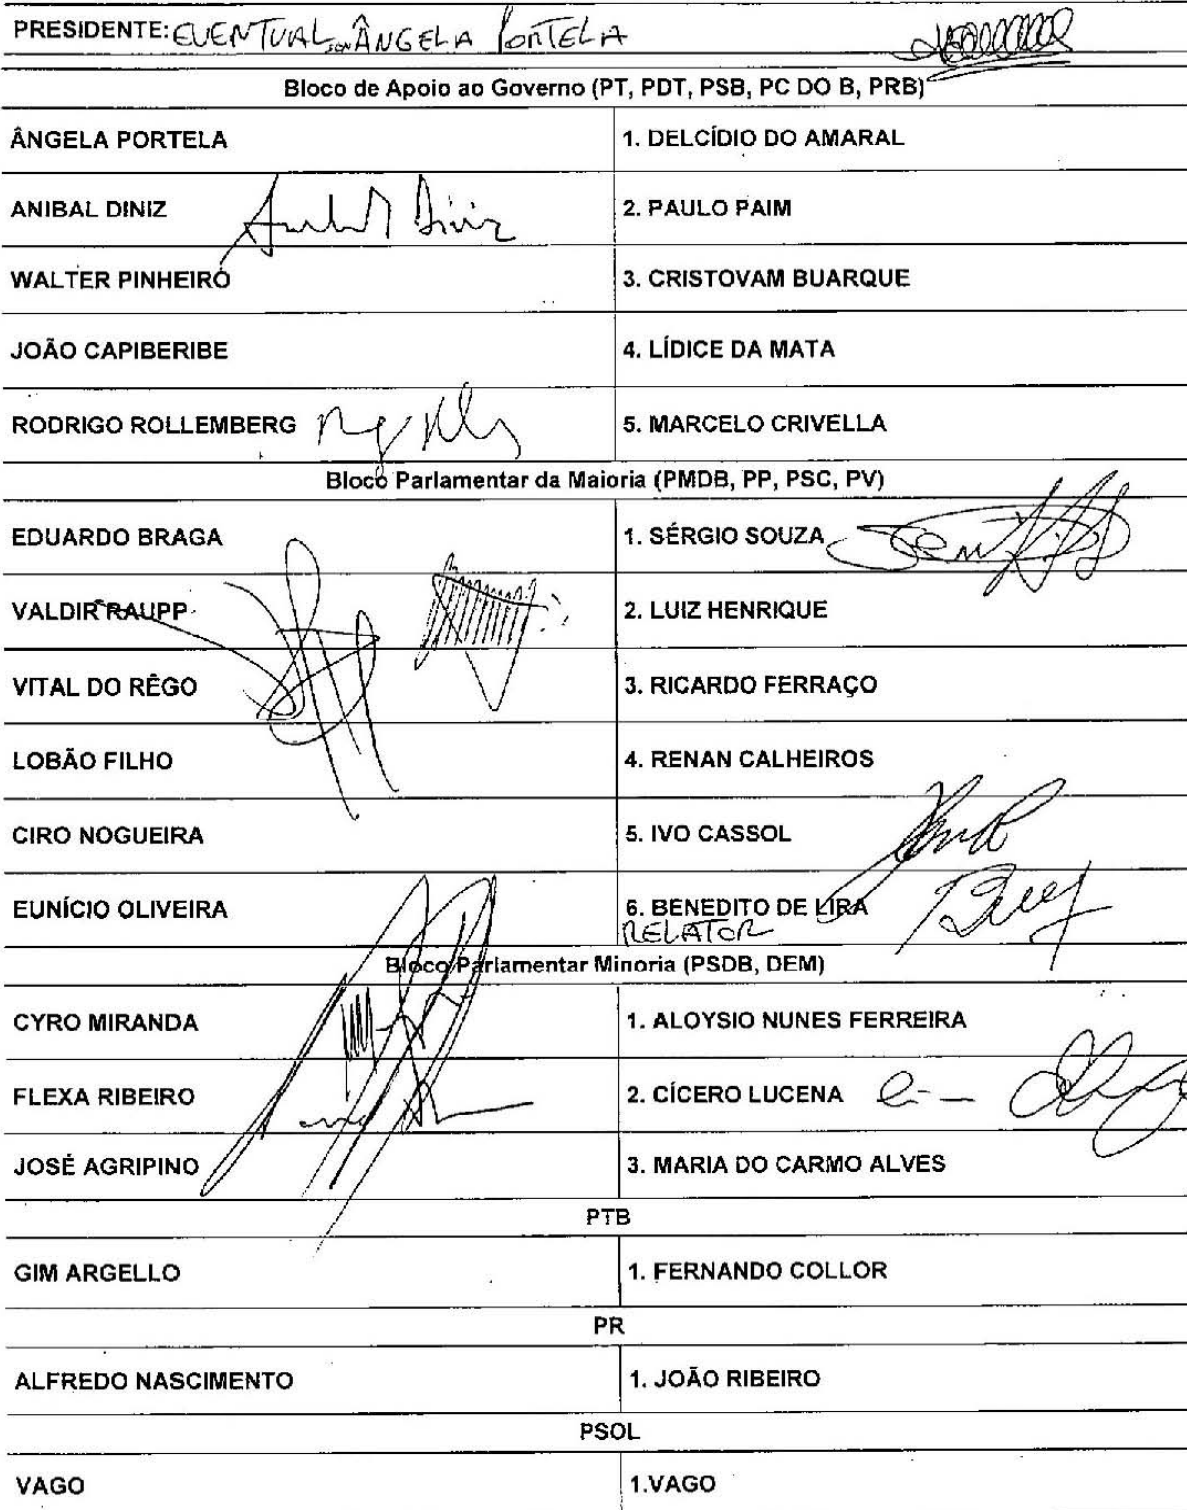 PRESIDENTE: EVENTUAL, SEN ÂNGELA PORTELA
Bloco de Apoio ao Governo (PT, PDT, PSB, PC DO B, PRB)
ÂNGELA PORTELA 1. DELCÍDIO DO AMARAL
ANIBAL DINIZ Anibal Diniz 2. PAULO PAIM
WALTER PINHEIRO 3. CRISTOVAM BUARQUE
JOÃO CAPIBERIBE 4. LÍDICE DA MATA
RODRIGO ROLLEMBERG 5. MARCELO CRIVELLA
Bloco Parlamentar da Maioria (PMDB, PP, PSC, PV)
EDUARDO BRAGA 1. SÉRGIO SOUZA
VALDIR RAUPP 2. LUIZ HENRIQUE
VITAL DO RÊGO 3. RICARDO FERRAÇO
LOBÃO FILHO 4. RENAN CALHEIROS
CIRO NOGUEIRA 5. IVO CASSOL
EUNÍCIO OLIVEIRA 6. BENEDITO DE LIRA
RELATOR
Bloco Parlamentar Minoria (PSDB, DEM)
CYRO MIRANDA 1. ALOYSIO NUNES FERREIRA
FLEXA RIBEIRO 2. CÍCERO LUCENA
JOSÉ AGRIPINO 3. MARIA DO CARMO ALVES
PTB
GIM ARGELLO 1. FERNANDO COLLOR
PR
ALFREDO NASCIMENTO 1. JOÃO RIBEIRO
PSOL
VAGO 1.VAGO